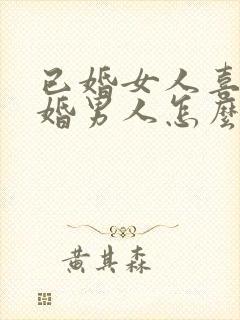 已婚女人喜
婚男人怎麼
黃其森